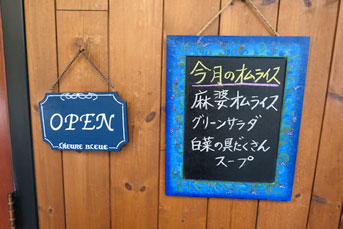 OPEN
LIEVRE BLEUE
今月のオムライス
麻婆オムライス
グリーンサラダ
白菜の具だくさん
スープ